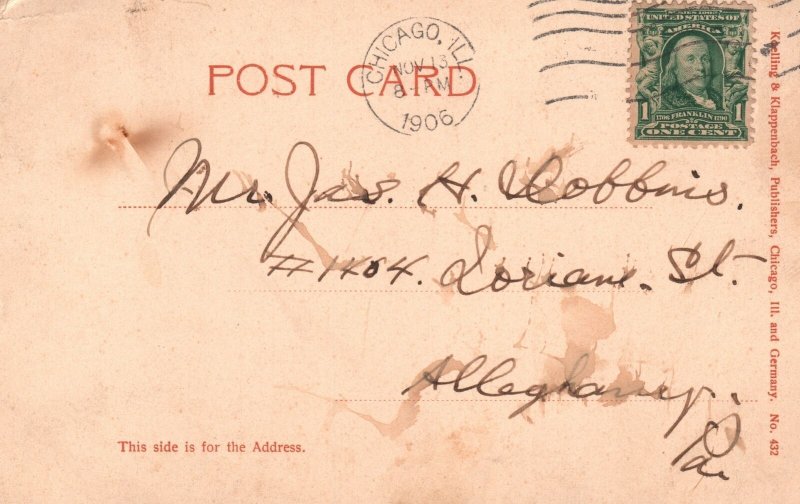 POST CARD
CHICAGO, ILL.
NOV 13
8 - PM
1906
UNITED STATES OF AMERICA
1706 FRANKLIN 1790
1 POSTAGE 1
ONE CENT
Mr. Jas. H. Dobbins.
#1404. St.
Allegheny.
Pa.
This side is for the Address.
Koelling & Klappenbach, Publishers, Chicago, Ill. and Germany. No. 432